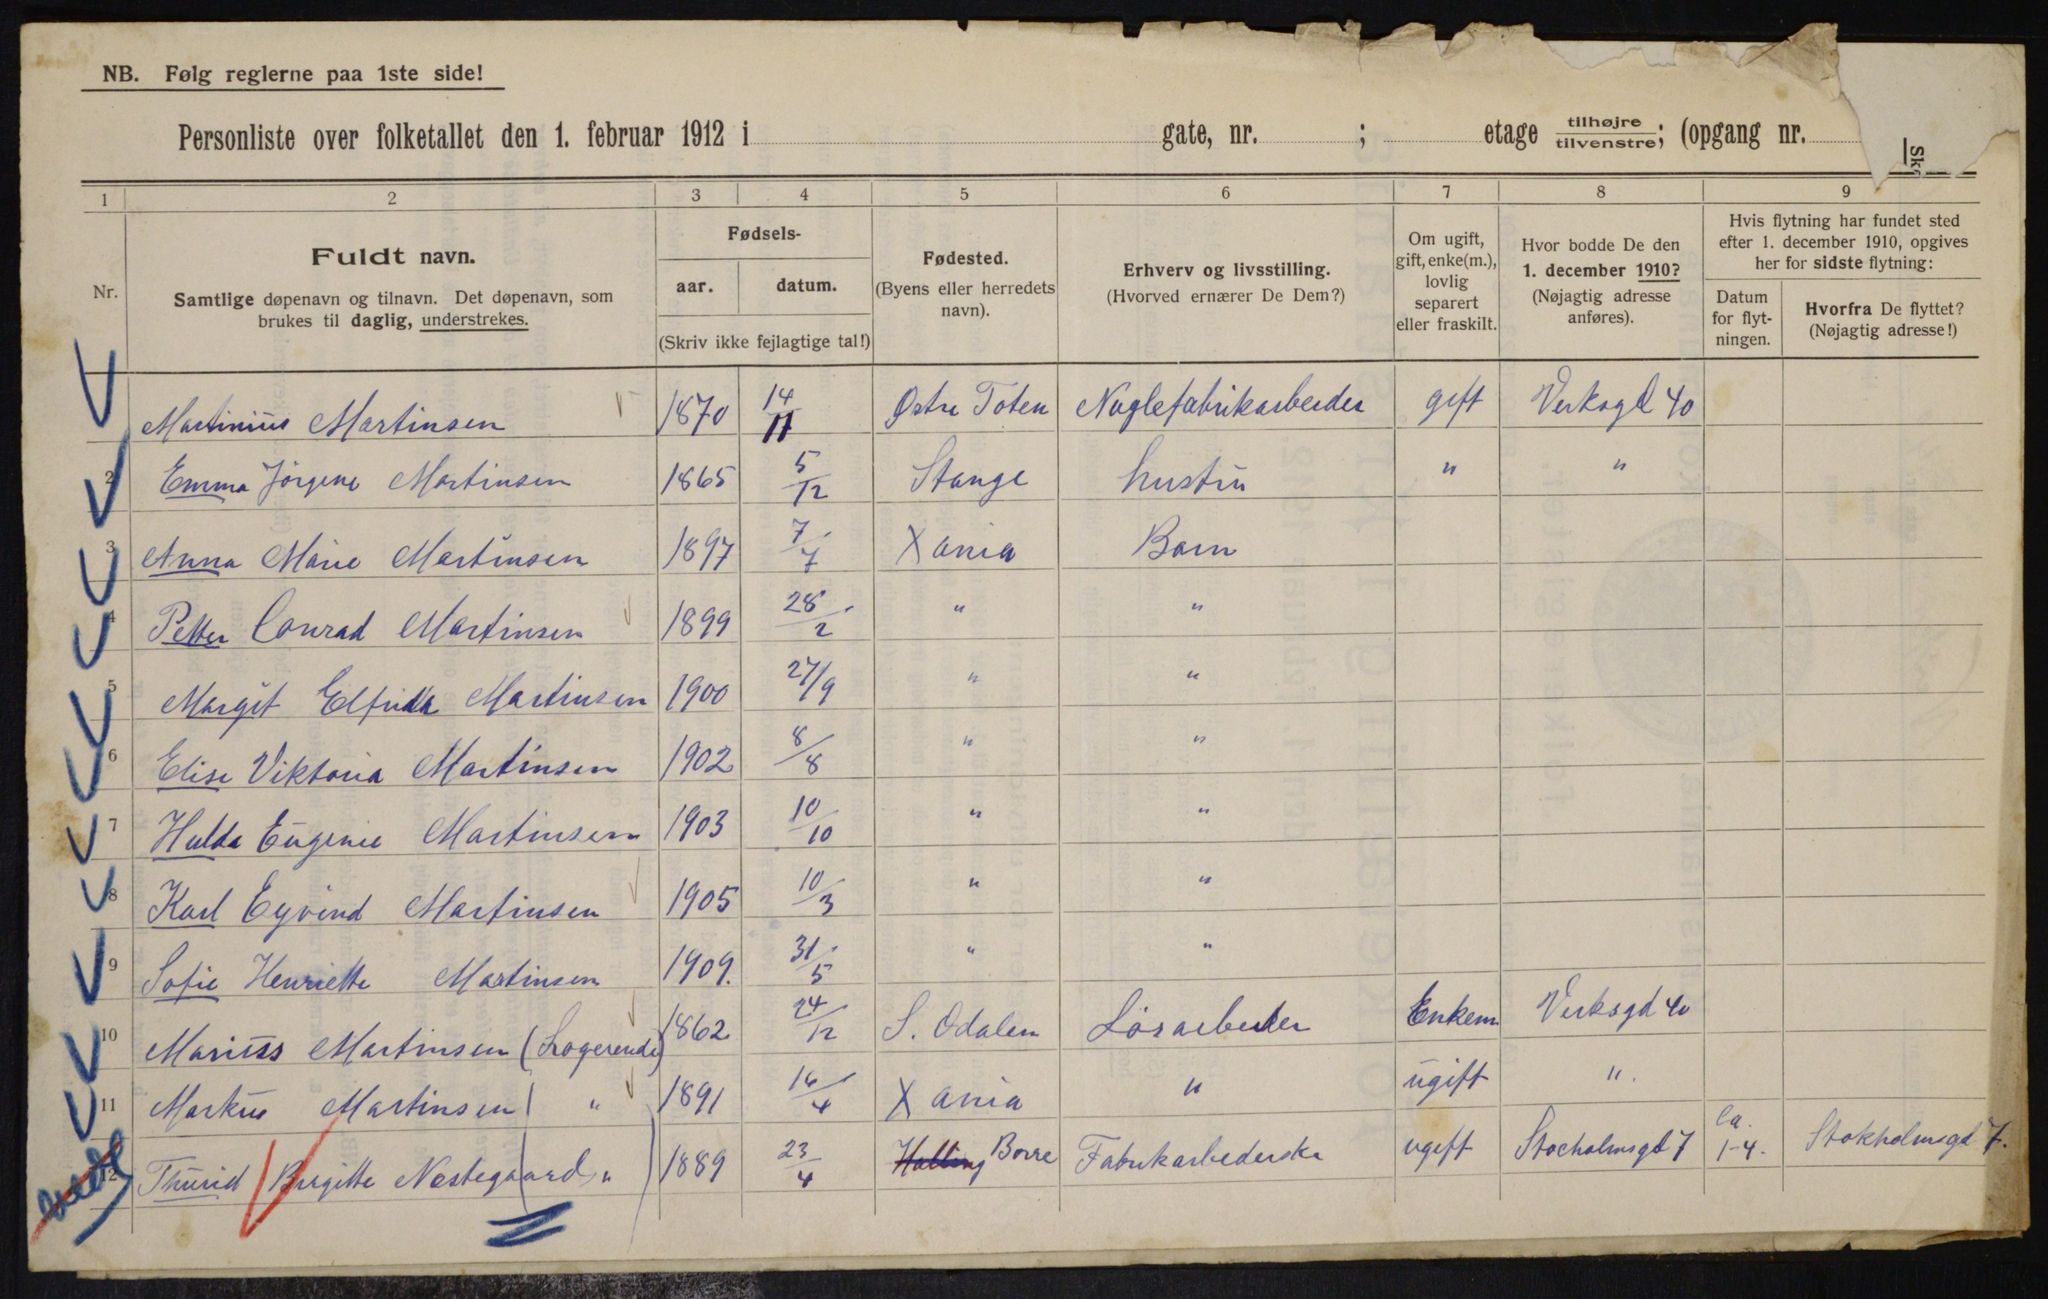 NB. Følg reglerne paa 1ste side!
Personliste over folketallet den 1. februar 1912 i gate, nr. ; etage tilhøjre/tilvenstre; (opgang nr.
Sk
1 2 3 4 5 6 7 8 9
Nr.
Fuldt navn.
Samtlige døpenavn og tilnavn. Det døpenavn, som
brukes til daglig, understrekes.
Fødsels-
aar. datum.
(Skriv ikke fejlagtige tal!)
Fødested.
(Byens eller herredets
navn).
Erhverv og livsstilling.
(Hvorved ernærer De Dem?)
Om ugift,
gift, enke(m.),
lovlig
separert
eller fraskilt.
Hvor bodde De den
1. december 1910?
(Nøjagtig adresse
anføres).
Hvis flytning har fundet sted
efter 1. december 1910, opgives
her for sidste flytning:
Datum
for flyt-
ningen.
Hvorfra De flyttet?
(Nøjagtig adresse!)
Martinius Martinsen 1870 14/11 Østre Toten Naglefabrikarbeider gift Verksgd 40
2 Emma Jørgene Martinsen 1865 5/12 Stange hustru " "
3 Anna Marie Martinsen 1897 7/7 Xania Barn
4 Petter Conrad Martinsen 1899 28/2 " "
5 Margit Elfrida Martinsen 1900 27/9 " "
6 Elise Viktoria Martinsen 1902 8/8 " "
7 Hulda Eugenie Martinsen 1903 10/10 " "
8 Karl Eyvind Martinsen 1905 10/3 " "
9 Sofie Henriette Martinsen 1909. 31/5 " "
10 Marius Martinsen (Logerende) 1862 24/12 S. Odalen Løsarbeider Enkem Verksgd 40
11 Markus Martinsen ( " 1891 16/4 Xania " ugift ".
12 Thurid Birgitte Nestegaard ( " ) 1889 23/4 Halling Borre Fabrikarbeiderske ugift Stocholmsgd 7 ca. 1-4. Stokholmsgd 7.